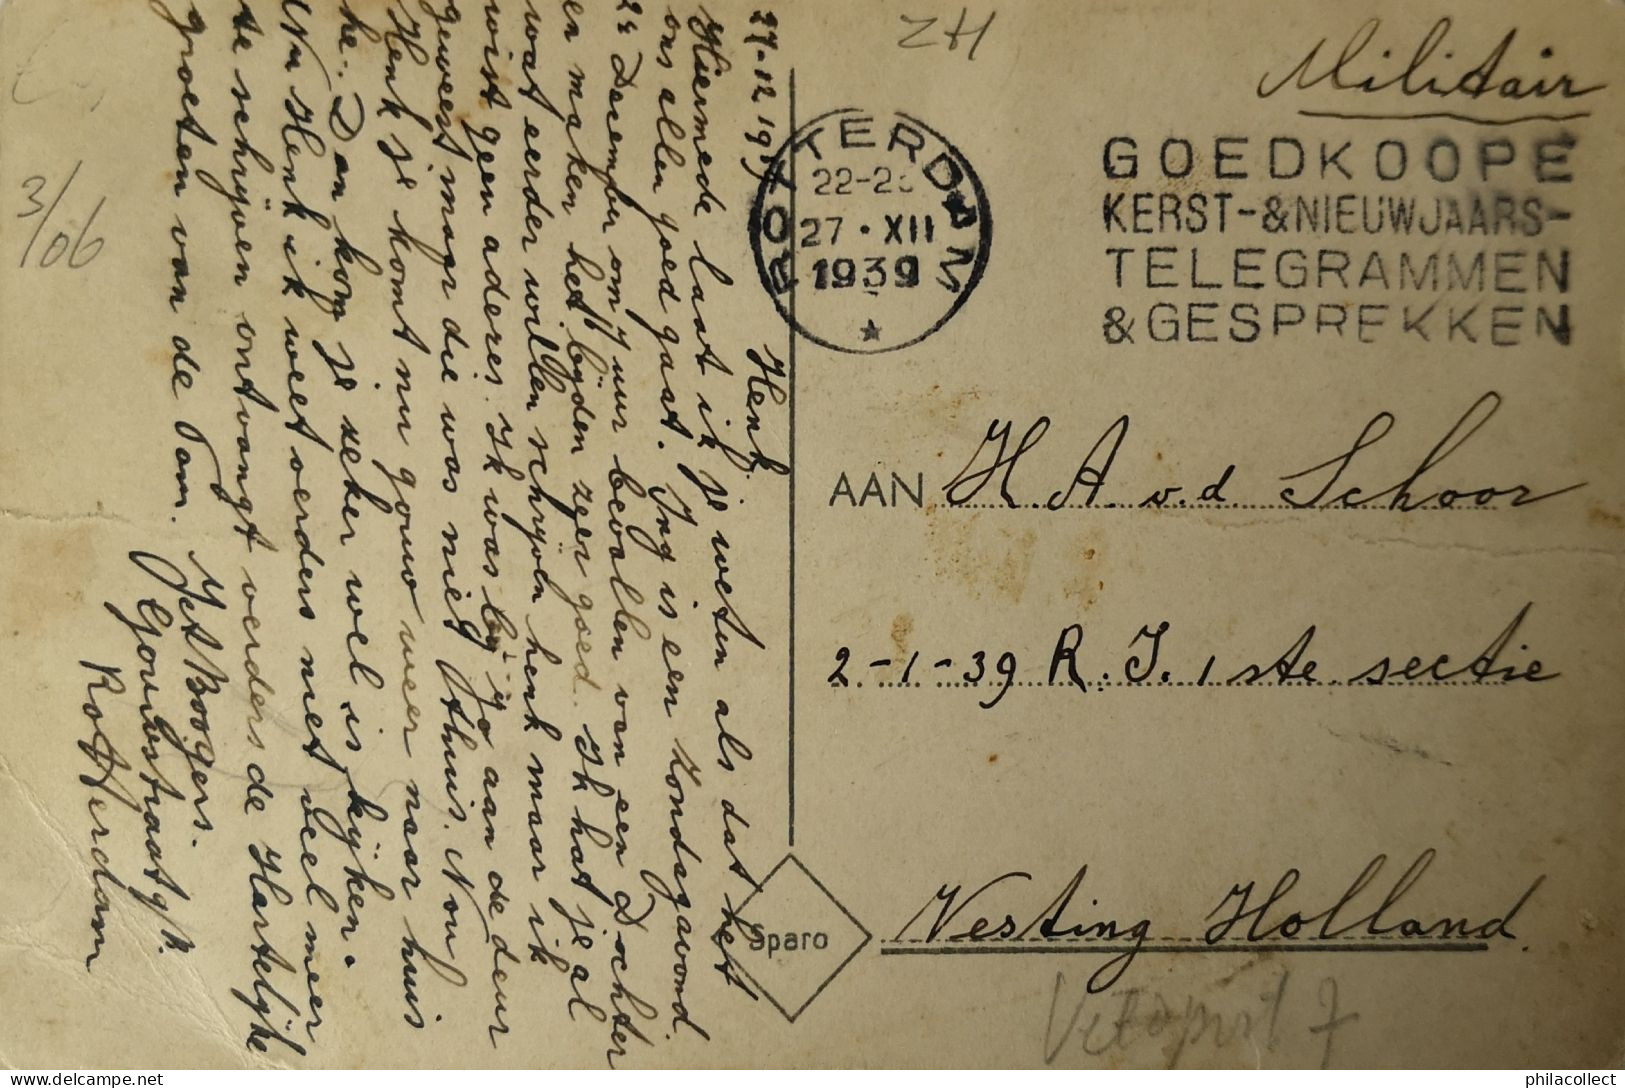 27-12 1939
Henk.
Hiermede laat ik je weten als dat het
ons allen goed gaat. Ing is een zondagavond
24 December om 7 uur bevallen van een Dochter
en maken het bijden zeer goed. Ik had je al
wat eerder willen schrijven henk maar ik
wist geen aderes. Ik was bij ja aan de deur
geweest maar die was niet thuis. Nou
Henk je komt nu gouw weer naar huis
he. Dan kom je zeker wel is kijken.
Nu Henk ik weet verders niet veel meer
te schrijven ontvangt verders de Hartelijke
groeten van de Fam.
Jet Boogers.
Gouwstraat
Rotterdam
ZH
3/06
Militair
ROTTERDAM
22-2
27 · XII
1939
GOEDKOOPE
KERST-&NIEUWJAARS-
TELEGRAMMEN
&GESPREKKEN
AAN H. A. v. d Schoor
2-1-39 R. I. 1 ste sectie
Vesting Holland.
Sparo
Veldpost 7
philacollect